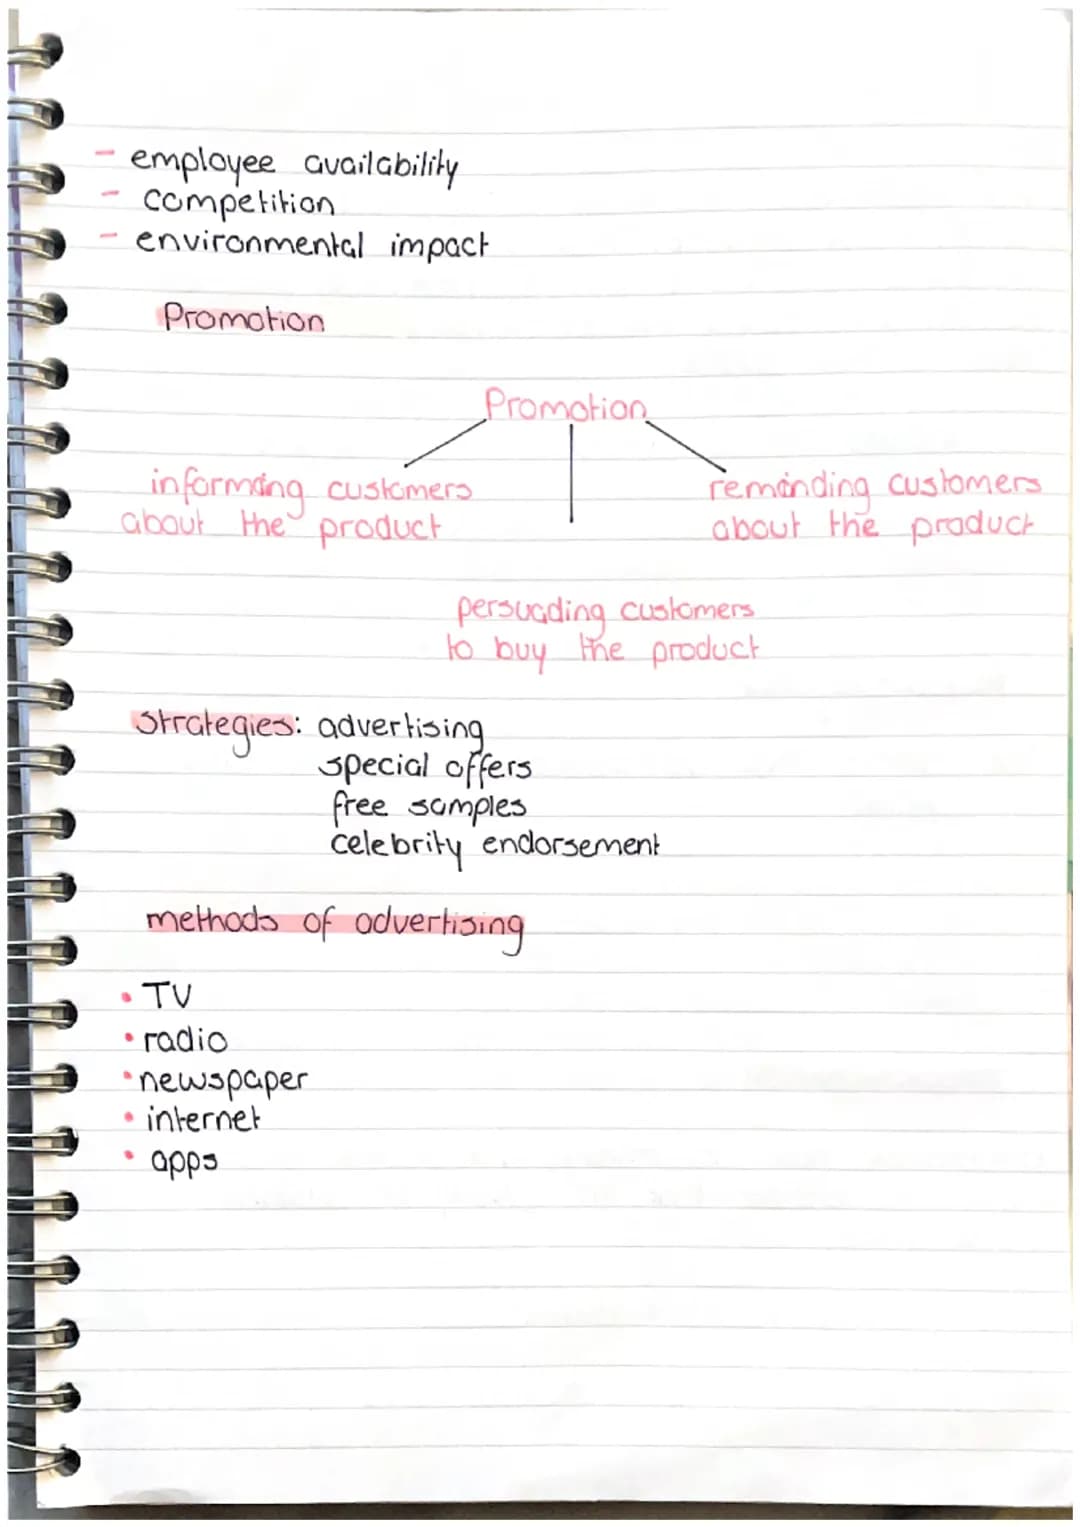 - employee availability
- competition
- environmental impact
Promotion
Promotion
informing customers
about the product
reminding customers
about the product
persuading customers
to buy the product
Strategies: advertising
special offers
free samples
celebrity endorsement
methods of advertising
• TV
• radio
• newspaper
• internet
• apps